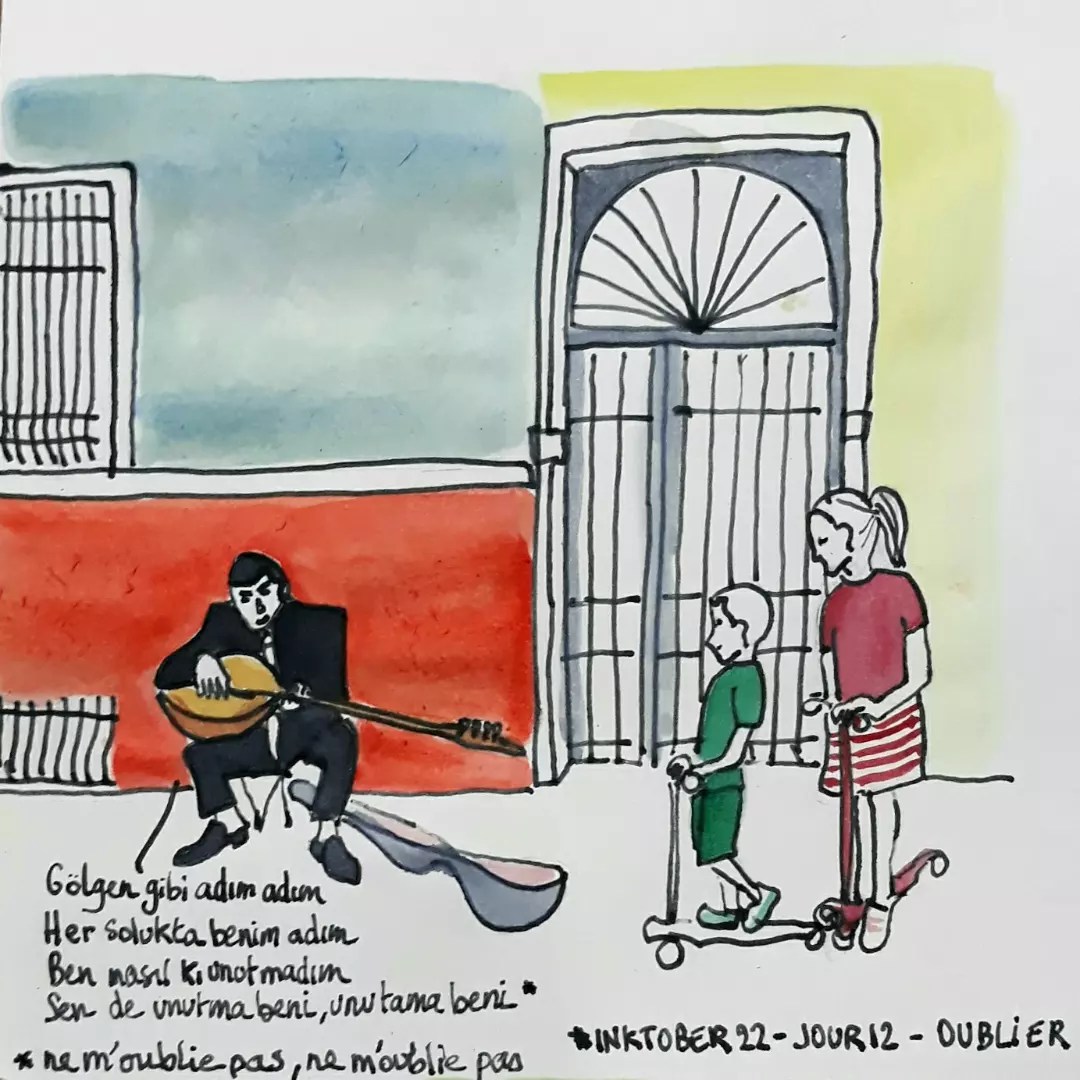 Gölgen gibi adım adım
Her solukta benim adım
Ben nasıl ki unutmadım
Sen de unutma beni, unutama beni *
* ne m'oublie pas, ne m'oublie pas
*INKTOBER 22 - JOUR 12 - OUBLIER